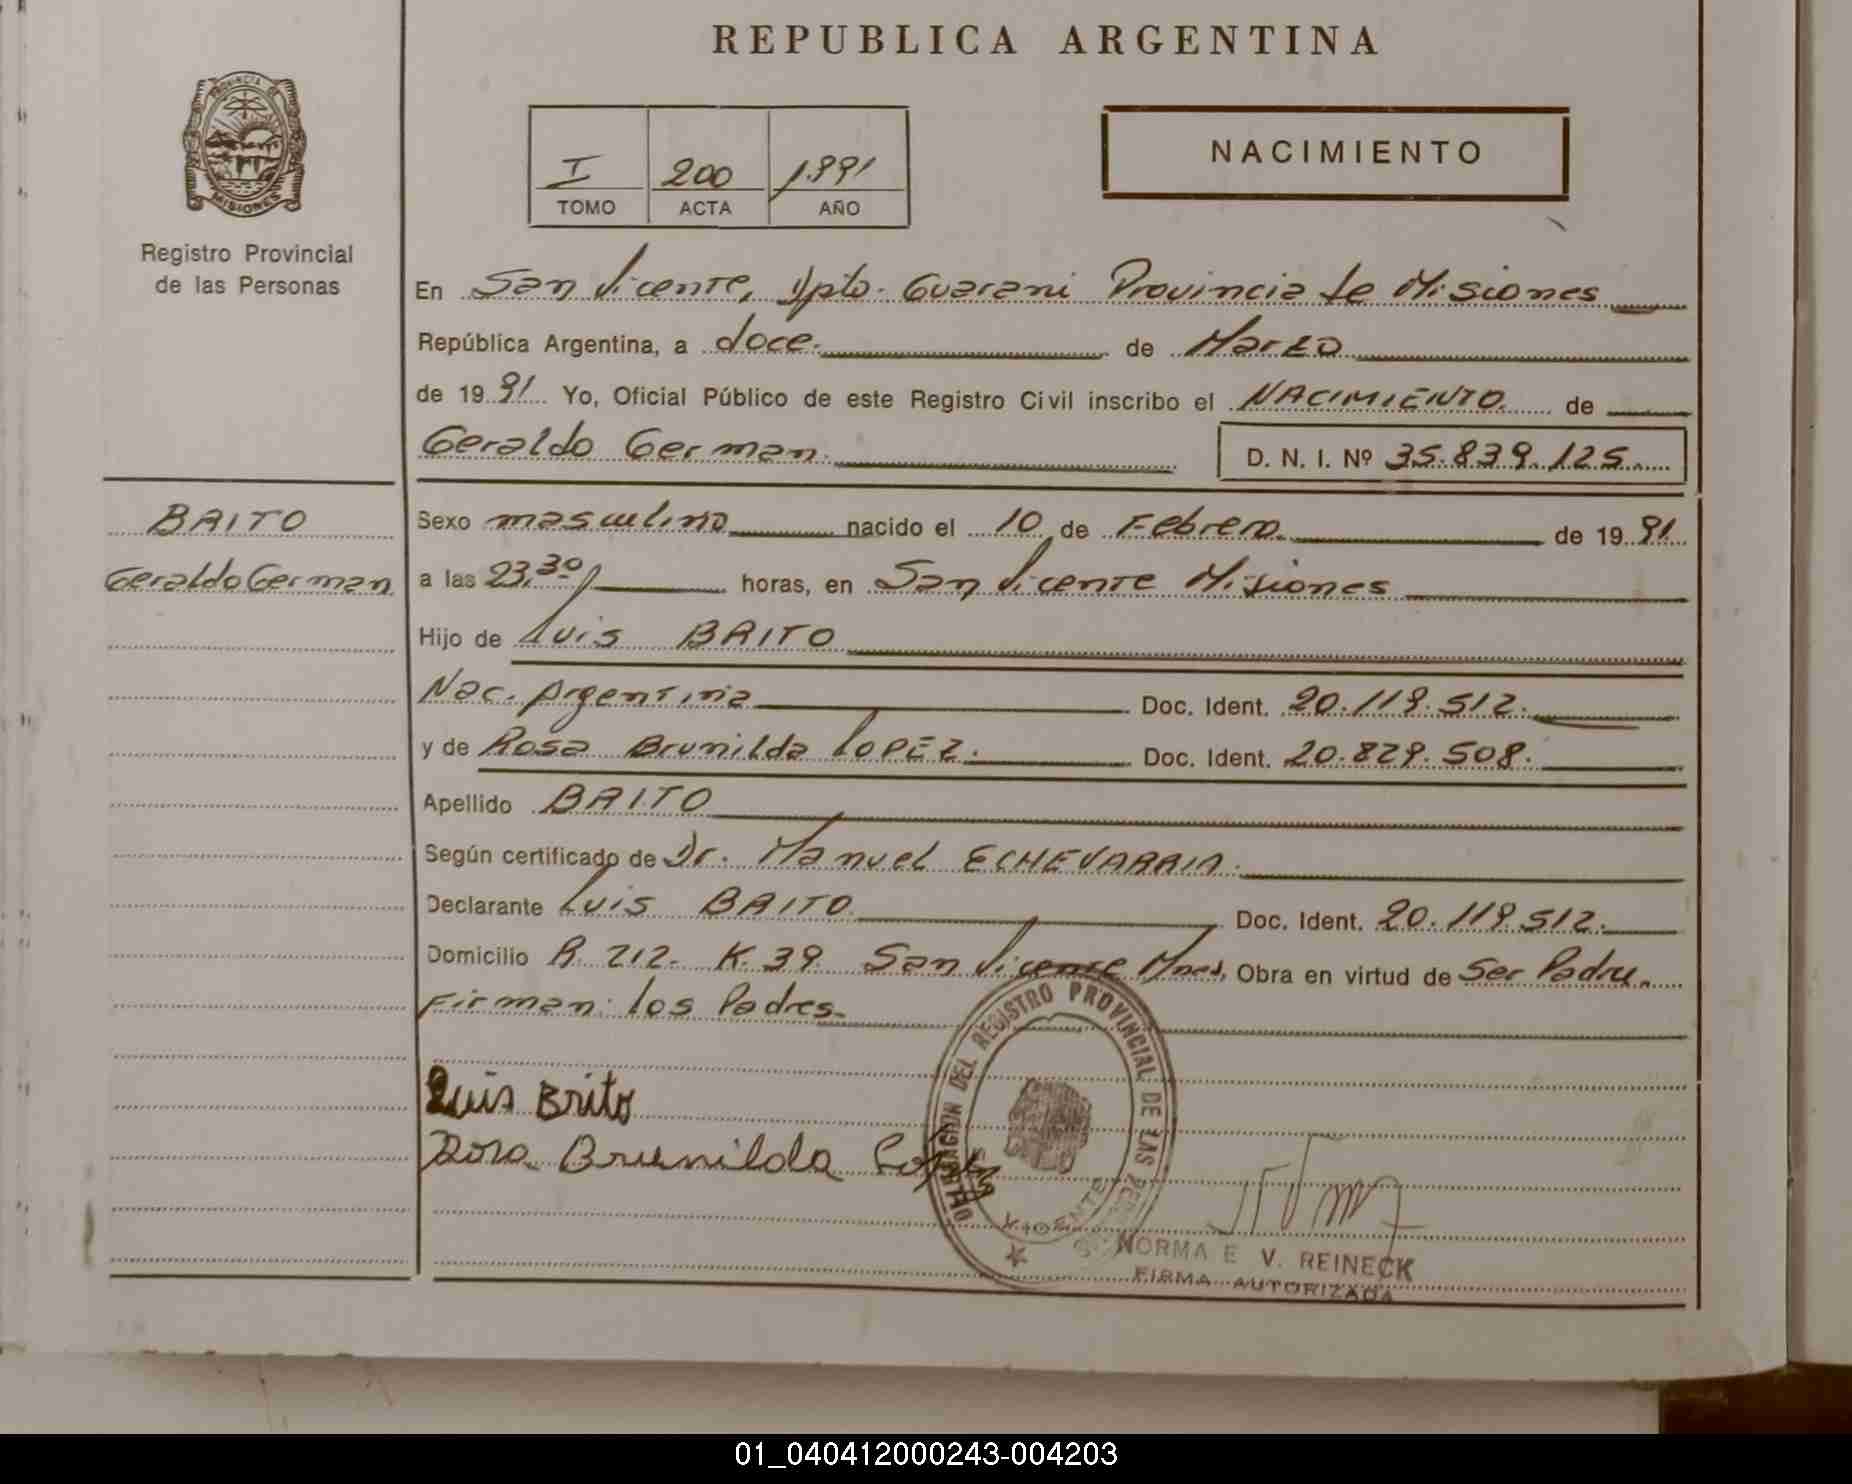 REPUBLICA ARGENTINA
PROVINCIA DE
MISIONES
Registro Provincial
de las Personas
I 200 1.991
TOMO ACTA AÑO
NACIMIENTO
En San Vicente, Dpto. Guarani Provincia de Misiones
República Argentina, a doce. de Marzo
de 19 91 Yo, Oficial Público de este Registro Civil inscribo el NACIMIENTO. de
Geraldo German. D. N. I. Nº 35.839.125.
BRITO
Geraldo German
Sexo masculino nacido el 10 de Febrero. de 19 91.
a las 23,30 horas, en San Vicente Misiones
Hijo de Luis BRITO
Nac. Argentina Doc. Ident. 20.119.512.
y de Rosa Brunilda LOPEZ. Doc. Ident. 20.829.508.
Apellido BRITO
Según certificado de Dr. Manuel ECHEVARRIA.
Declarante Luis BRITO. Doc. Ident. 20.119.512.
Domicilio R. 212. K. 39. San Vicente Mnes. Obra en virtud de Ser Padre.
Firman: los Padres.
Luis Brito
Rosa Brunilda Lopez
DEL REGISTRO PROVINCIAL DE LAS
VICENTE
NORMA E V. REINECK
FIRMA AUTORIZADA
01_040412000243-004203